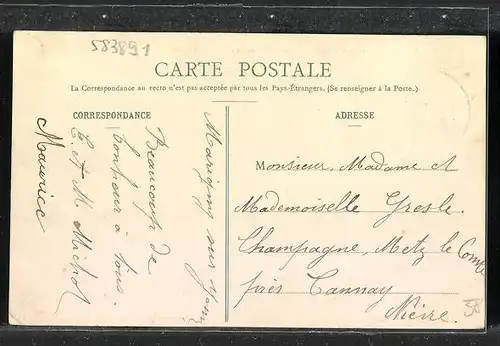 583891
CARTE POSTALE
La Correspondance au recto n'est pas acceptée par tous les Pays-Étrangers. (Se renseigner à la Poste.)
CORRESPONDANCE
ADRESSE
Marigny sur Yonne
Beaucoup de
bonheur à tous.
E. et M. Michot
Maurice
Monsieur, Madame et
Mademoiselle Gresle.
Champagne, Metz le Comte
près Tannay
Nièvre.
58